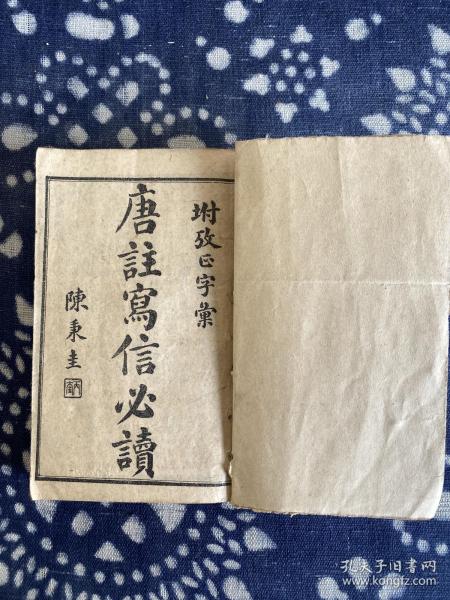 坿攷正字彙
唐註寫信必讀
陳秉圭
孔夫子旧书网
www.kongfz.com